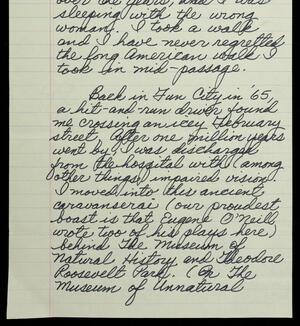 over the years, and I was
sleeping with the wrong
woman. I took a walk
and I have never regretted
the long American walk I
took in mid-passage.
Back in Fun City in '65,
a hit-and-run driver found
me crossing an icy February
street. After one million years
went by, I was discharged
from the hospital with (among
other things) impaired vision.
I moved into this ancient
caravanserai (our proudest
boast is that Eugene O'Neill
wrote two of his plays here)
behind The Museum of
Natural History and Theodore
Roosevelt Park. (Or The
Museum of Unnatural